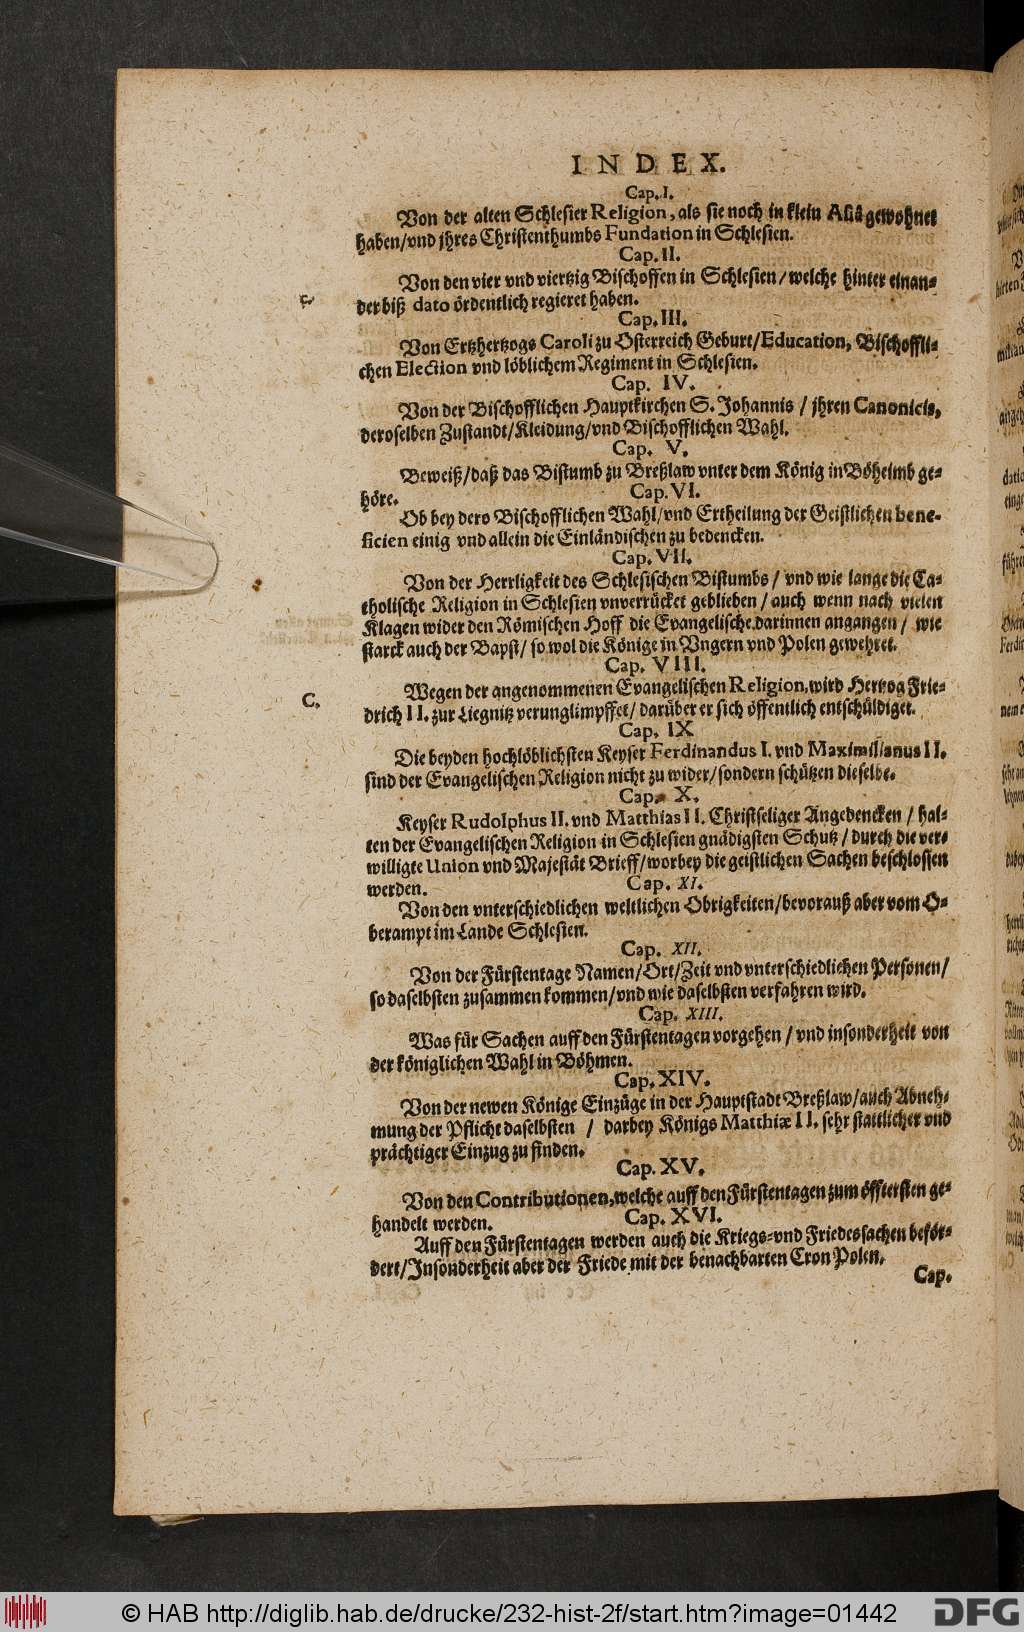 INDEX.
Cap. I.
Von der alten Schlesier Religion, als sie noch in klein Asiâ gewohnet
haben/vnd jhres Christenthumbs Fundation in Schlesien.
Cap. II.
Von den vier vnd viertzig Bischoffen in Schlesien/welche hinter einan-
der biß dato ördentlich regieret haben.
Cap. III.
Von Ertzhertzogs Caroli zu Osterreich Geburt/Education, Bischoffli-
chen Election vnd löblichem Regiment in Schlesien.
Cap. IV.
Von der Bischofflichen Hauptkirchen S. Johannis / jhren Canonicis,
deroselben Zustandt/Kleidung/vnd Bischofflichen Wahl.
Cap. V.
Beweiß/daß das Bistumb zu Breßlaw vnter dem König in Böheimb ge-
höre.
Cap. VI.
Ob bey dero Bischofflichen Wahl/vnd Ertheilung der Geistlichen bene-
ficien einig vnd allein die Einländischen zu bedencken.
Cap. VII.
Von der Herrligkeit des Schlesischen Bistumbs / vnd wie lange die Ca-
tholische Religion in Schlesien vnverrücket geblieben / auch wenn nach vielen
Klagen wider den Römischen Hoff die Evangelische darinnen angangen / wie
starck auch der Bapst/ so wol die Könige in Vngern vnd Polen gewehret.
Cap. VIII.
C.
Wegen der angenommenen Evangelischen Religion, wird Hertzog Frie-
drich II. zur Liegnitz verunglimpffet/ darüber er sich öffentlich entschüldiget.
Cap. IX
Die beyden hochlöblichsten Keyser Ferdinandus I. vnd Maximilianus II.
sind der Evangelischen Religion nicht zu wider/sondern schützen dieselbe.
Cap. X.
Keyser Rudolphus II. vnd Matthias II. Christseliger Angedencken / hal-
ten der Evangelischen Religion in Schlesien gnädigsten Schutz / durch die ver-
willigte Union vnd Majestät Brieff/worbey die geistlichen Sachen beschlossen
werden.
Cap. XI.
Von den vnterschiedlichen weltlichen Obrigkeiten/bevorauß aber vom O-
berampt im Lande Schlesien.
Cap. XII.
Von der Fürstentage Namen/Ort/Zeit vnd vnterschiedlichen Personen/
so daselbsten zusammen kommen/vnd wie daselbsten verfahren wird.
Cap. XIII.
Was für Sachen auff den Fürstentagen vorgehen / vnd insonderheit von
der königlichen Wahl in Böhmen.
Cap. XIV.
Von der newen Könige Einzüge in der Hauptstadt Breßlaw/auch Abneh-
mung der Pflicht daselbsten / darbey Königs Matthiæ II. sehr stattlicher vnd
prächtiger Einzug zu finden.
Cap. XV.
Von den Contributionen, welche auff den Fürstentagen zum öfftersten ge-
handelt werden.
Cap. XVI.
Auff den Fürstentagen werden auch die Kriegs-vnd Friedessachen beför-
dert/Insonderheit aber der Friede mit der benachbarten Cron Polen.
Cap.
© HAB http://diglib.hab.de/drucke/232-hist-2f/start.htm?image=01442
DFG